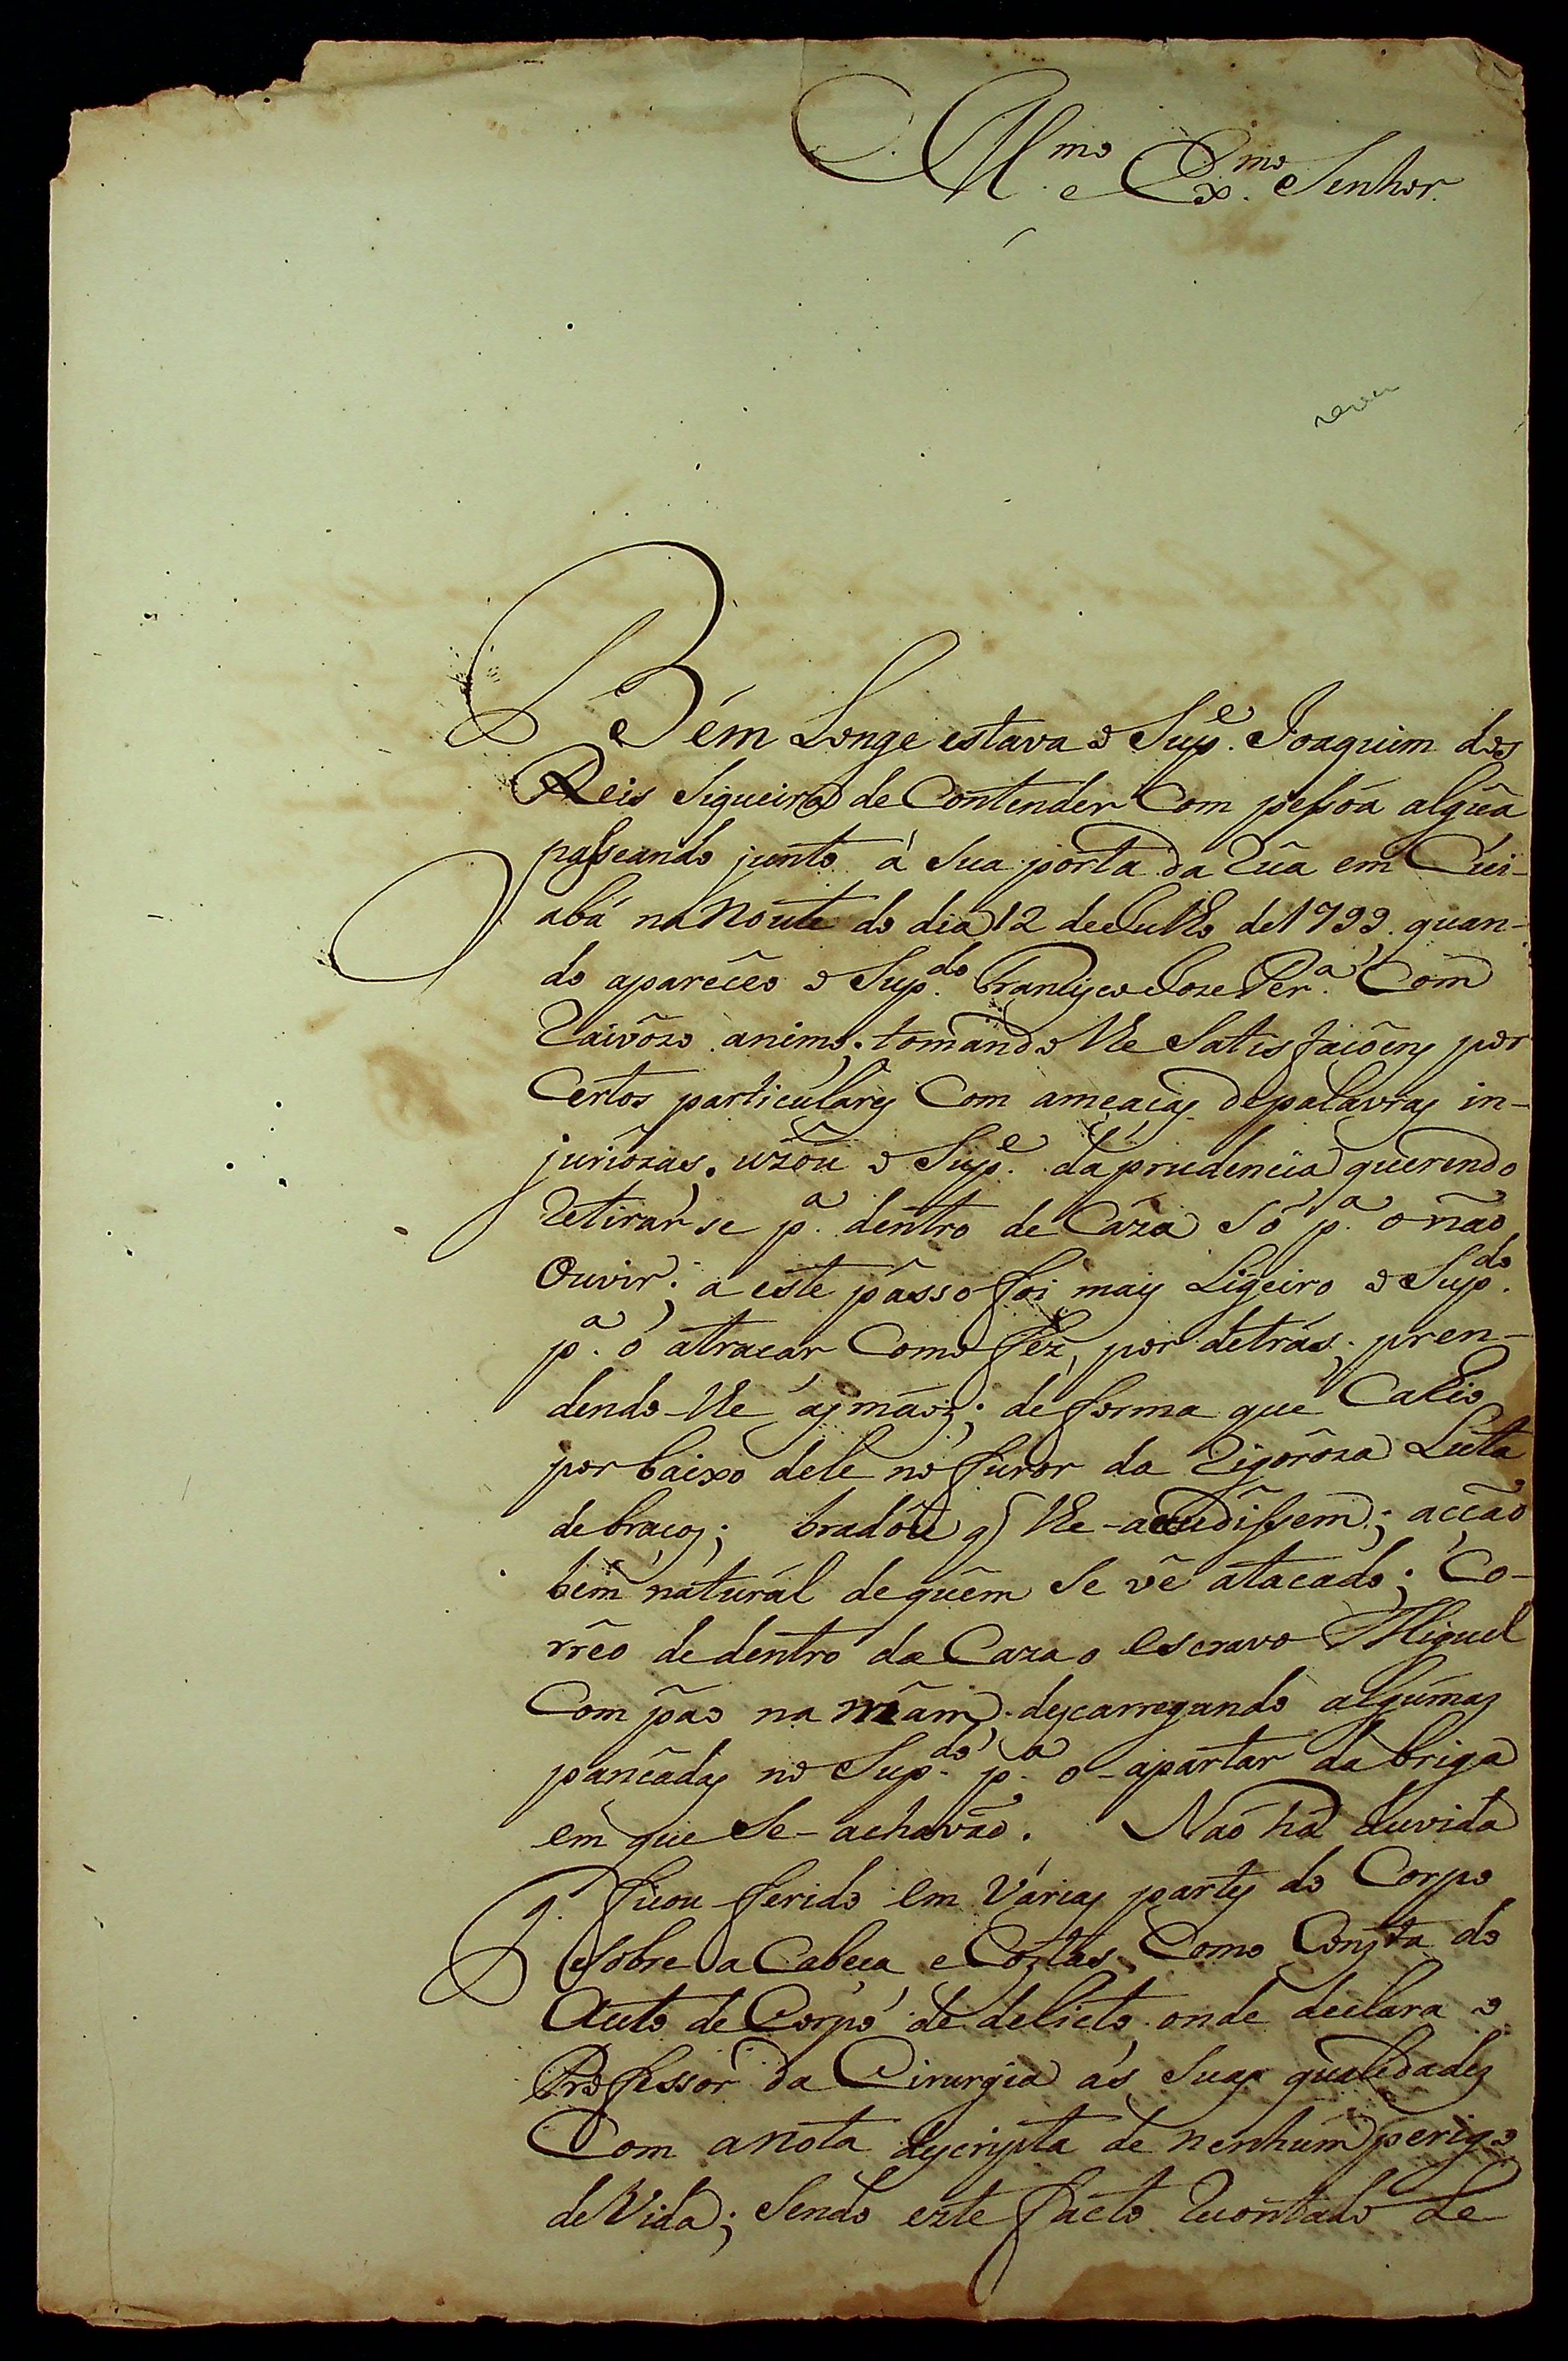 Ill.mo e Ex.mo Senhor.
Bém Longe estava o Sup.e Joaquim dos
Reis Siqueira de Contender Com pessôa algûa
passeando junto á Sua porta da Rûa em Cui-
abá na Noute do dia 12 de Julho de 1799. quan-
do aparêceo o Sup.do Francysco Joze Per.a Com
Raivôzo animo, tomando lhe Satisfaiôens por
Certos particúlares Com ameaças de palavras in-
juriôzas. uzôu o Sup.e da prudencia querendo
Retirár se p.a dentro de Cáza Só p.a o não
Ouvir; a este pâsso foi mais Ligeiro o Sup.do
p.a o atracar Como fêz, por detrás, pren-
dendo-lhe as mãos; de forma que Cahio
por baixo dele no furor da Rigorôza Luta
de braços; bradôu q lhe-acudissem; acção
bem natural de quêm Se vê atacado; Co-
rrêo de dentro da Caza o escravo Miguel
Com páo na mâm, descarregando algúmas
pancâdas no Sup.do p.a o-apartar da briga
em que Se-achavão. Não há duvida
q. ficou ferido em Várias partes do Corpo
sobre a Cabeca e Costas, Como Consta do
Auto de Corpo de delicto onde declara o
Professor da Cirurgia as Suas qualidades
Com a nota descripta de nenhúm perigo
de Vida; Sendo este facto Recontado de